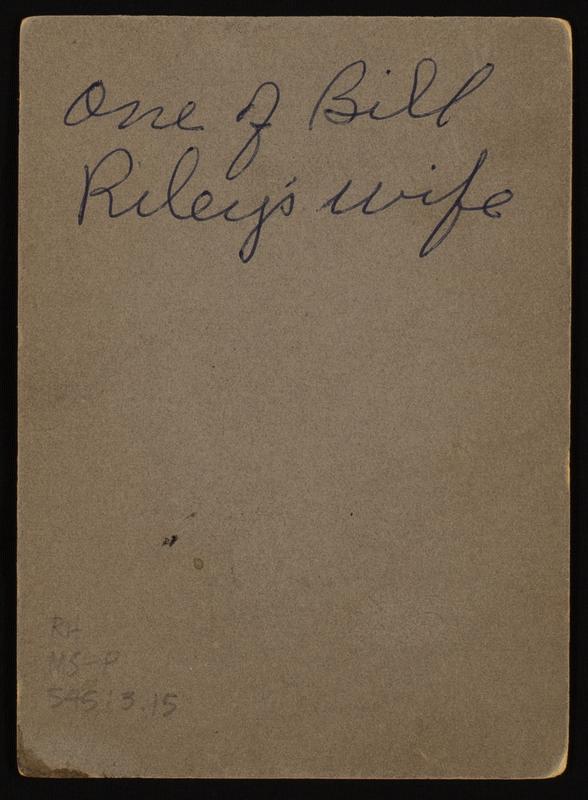 One of Bill
Riley's wife
RH
MS-P
545:3.15